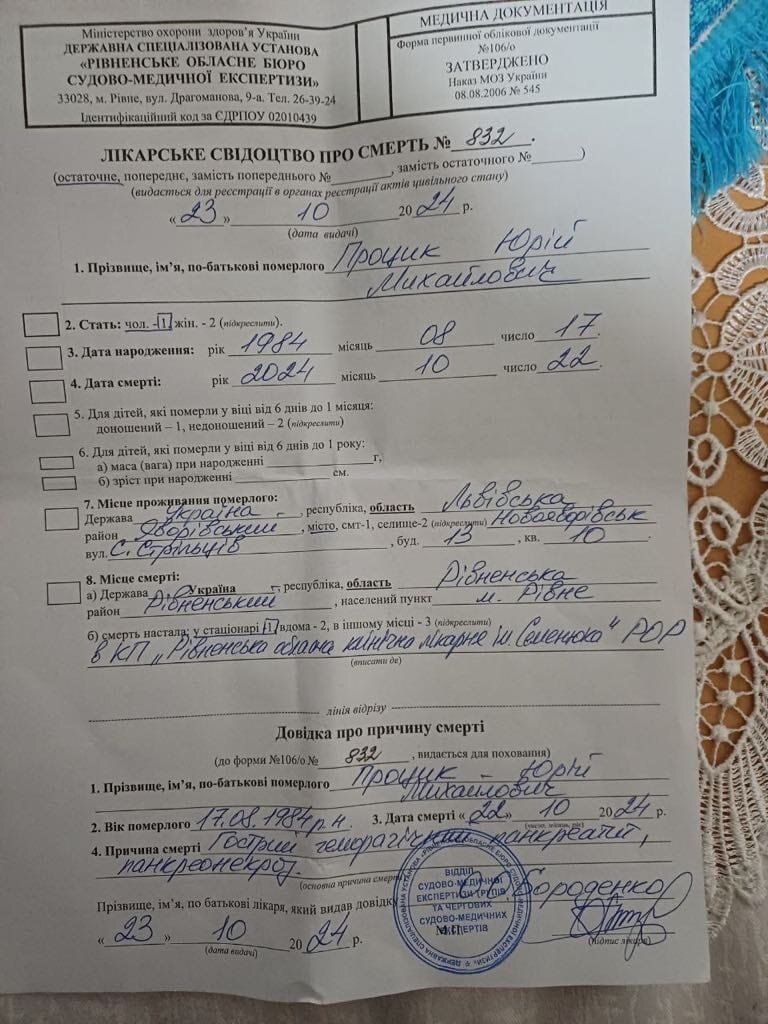 Міністерство охорони здоров'я України
ДЕРЖАВНА СПЕЦІАЛІЗОВАНА УСТАНОВА
«РІВНЕНСЬКЕ ОБЛАСНЕ БЮРО
СУДОВО-МЕДИЧНОЇ ЕКСПЕРТИЗИ»
33028, м. Рівне, вул. Драгоманова, 9-а. Тел. 26-39-24
Ідентифікаційний код за ЄДРПОУ 02010439
МЕДИЧНА ДОКУМЕНТАЦІЯ
Форма первинної облікової документації
№106/о
ЗАТВЕРДЖЕНО
Наказ МОЗ України
08.08.2006 № 545
ЛІКАРСЬКЕ СВІДОЦТВО ПРО СМЕРТЬ № 832.
(остаточне, попереднє, замість попереднього №________, замість остаточного №________)
(видається для реєстрації в органах реєстрації актів цивільного стану)
«23» 10 2024 р.
(дата видачі)
1. Прізвище, ім'я, по-батькові померлого Процик Юрій
Михайлович
2. Стать: чол. -1, жін. - 2 (підкреслити).
3. Дата народження: рік 1984 місяць 08 число 17.
4. Дата смерті: рік 2024 місяць 10 число 22.
5. Для дітей, які померли у віці від 6 днів до 1 місяця:
доношений – 1, недоношений – 2 (підкреслити)
6. Для дітей, які померли у віці від 6 днів до 1 року:
а) маса (вага) при народженні ________ г,
б) зріст при народженні ________ см.
7. Місце проживання померлого:
Держава Україна -, республіка, область Львівська
район Яворівський, місто, смт-1, селище-2 (підкреслити) Новояворівськ
вул. С. Стрільців, буд. 13, кв. 10.
8. Місце смерті:
а) Держава Україна -, республіка, область Рівненська
район Рівненський, населений пункт м. Рівне
б) смерть настала: у стаціонарі 1, вдома - 2, в іншому місці - 3 (підкреслити)
в КП „Рівненська обласна клінічна лікарня ім Семенюка" РОР
(вписати де)
лінія відрізу
Довідка про причину смерті
(до форми №106/о № 832, видається для поховання)
1. Прізвище, ім'я, по-батькові померлого Процик - Юрій
Михайлович
2. Вік померлого 17.08.1984 р.н. 3. Дата смерті «22» 10 2024 р.
(число, місяць, рік)
4. Причина смерті Гострий геморагічний панкреатит,
панкреонекроз.
(основна причина смерті)
Прізвище, ім'я, по батькові лікаря, який видав довідку Бороденко
«23» 10 2024 р.
(дата видачі)
М.П.
(підпис лікаря)
ВІДДІЛ
СУДОВО-МЕДИЧНОЇ
ЕКСПЕРТИЗИ ТРУПІВ
ТА ЧЕРГОВИХ
СУДОВО-МЕДИЧНИХ
ЕКСПЕРТІВ